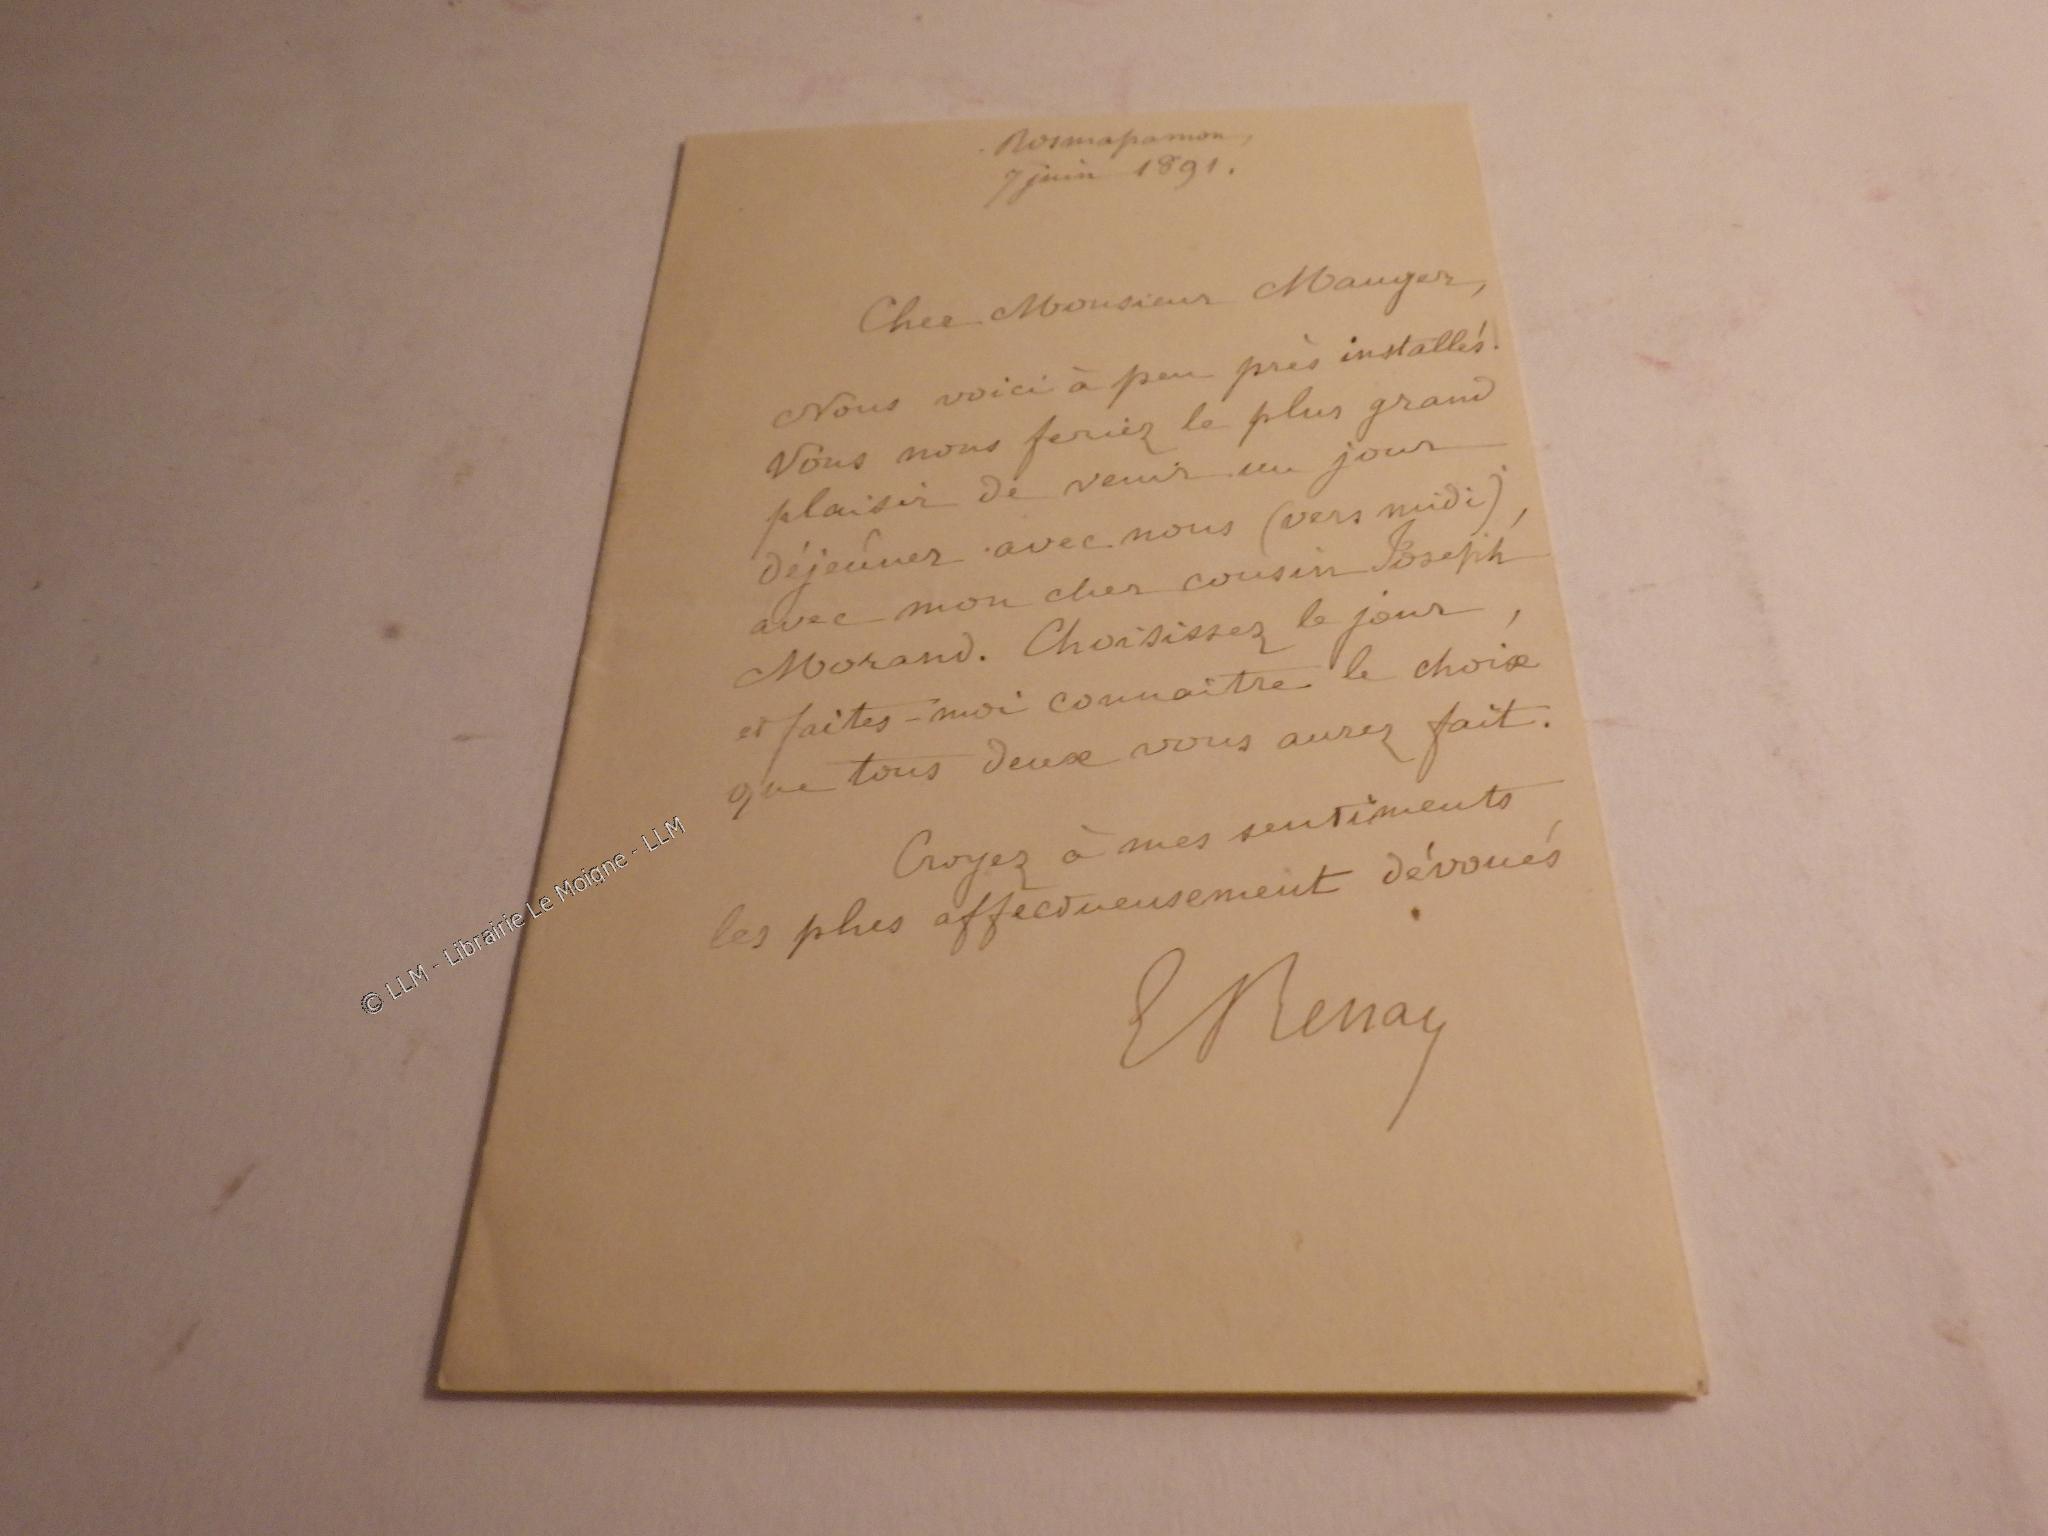 Rosmapamon,
7 juin 1891.
Cher Monsieur Mauger,
Nous voici à peu près installés.
Vous nous feriez le plus grand
plaisir de venir un jour
déjeuner avec nous (vers midi),
avec mon cher cousin Joseph
Morand. Choisissez le jour,
et faites-moi connaitre le choix
que tous deux vous aurez fait.
Croyez à mes sentiments
les plus affectueusement dévoués
E Renan
© LLM - Librairie Le Moigne - LLM